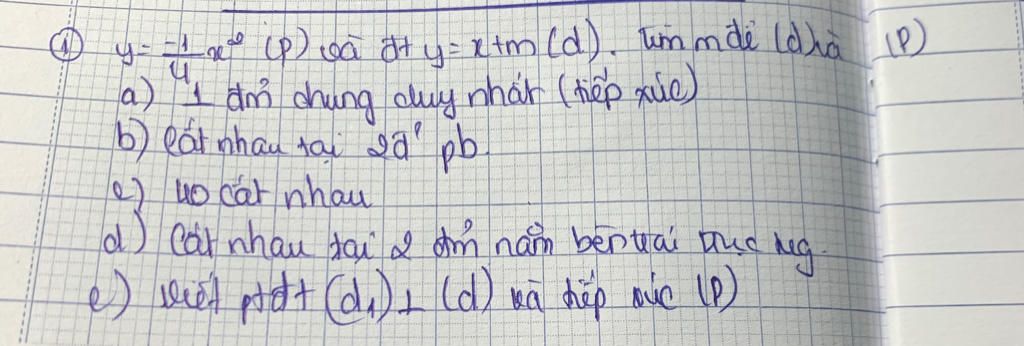 ① y = -1/4 x² (P) và đt y = x+m (d). Tìm m để (d) và (P)
a) 1 điểm chung duy nhất (tiếp xúc)
b) Cắt nhau tại 2đ' pb.
c) ko cắt nhau
d) Cắt nhau tại 2 điểm nằm bên trái trục tung.
e) viết ptđt (d₁) ⊥ (d) và tiếp xúc (P)